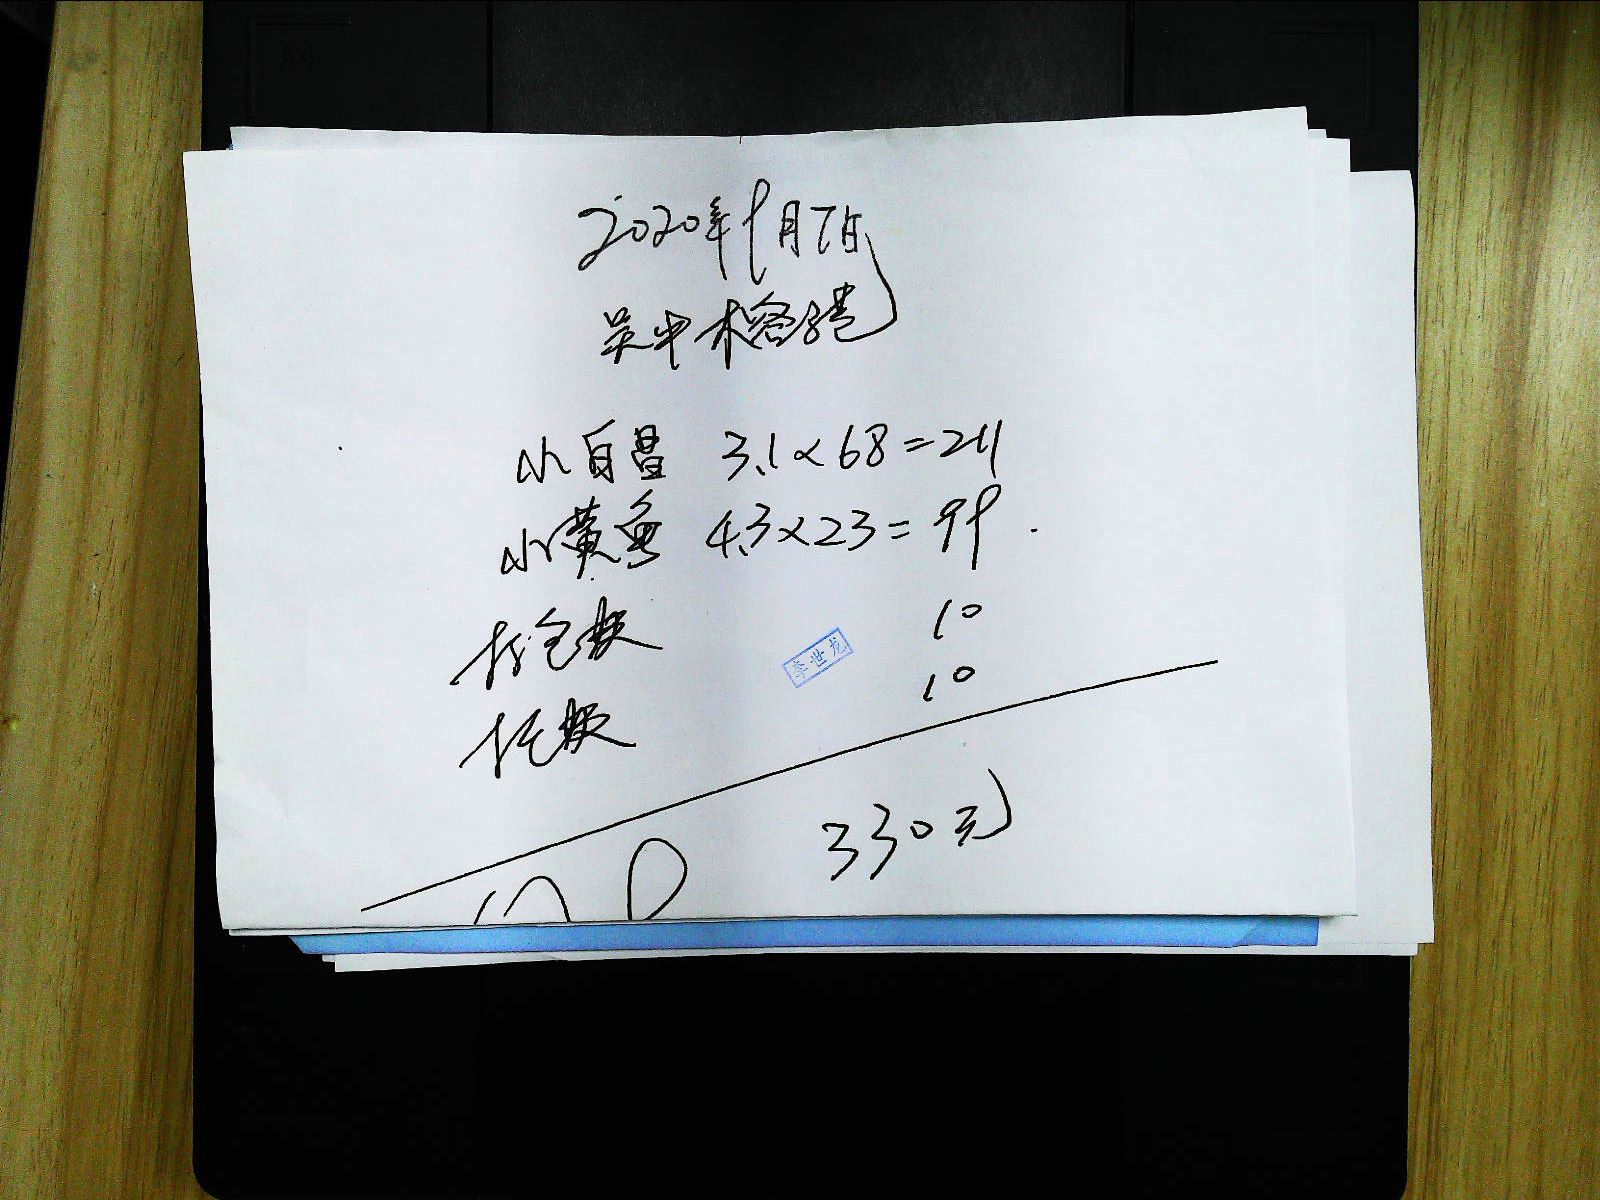 2020年9月7日
吴中木
小白 3.1×68=211
小黄鱼 4.3×23=99.
打包费 10
李世龙
托 10
330元